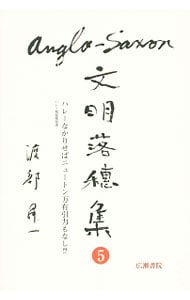 Anglo-Saxon
文明落穂集
5
ハレーなかりせばニュートン万有引力もなし!?
渡部昇一
広瀬書院